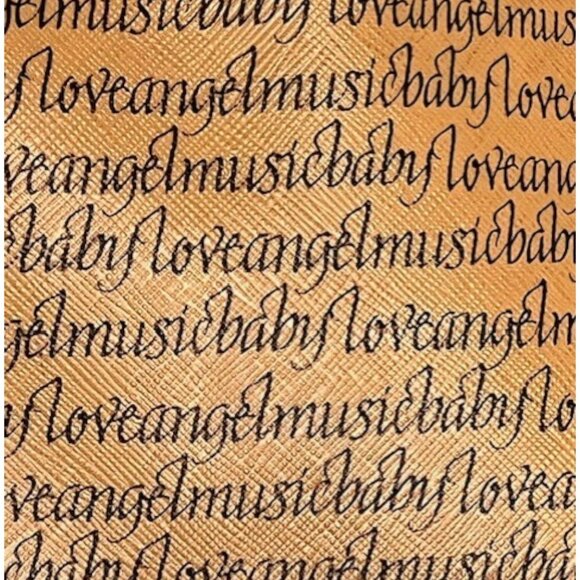 elmusicbaby loveangelmus
y loveangelmusicbaby love
veangelmusicbaby loveang
baby loveangelmusicbaby
gelmusicbaby loveangelm
y loveangelmusicbaby lo
veangelmusicbaby lovea
cbaby loveangelmusicbab